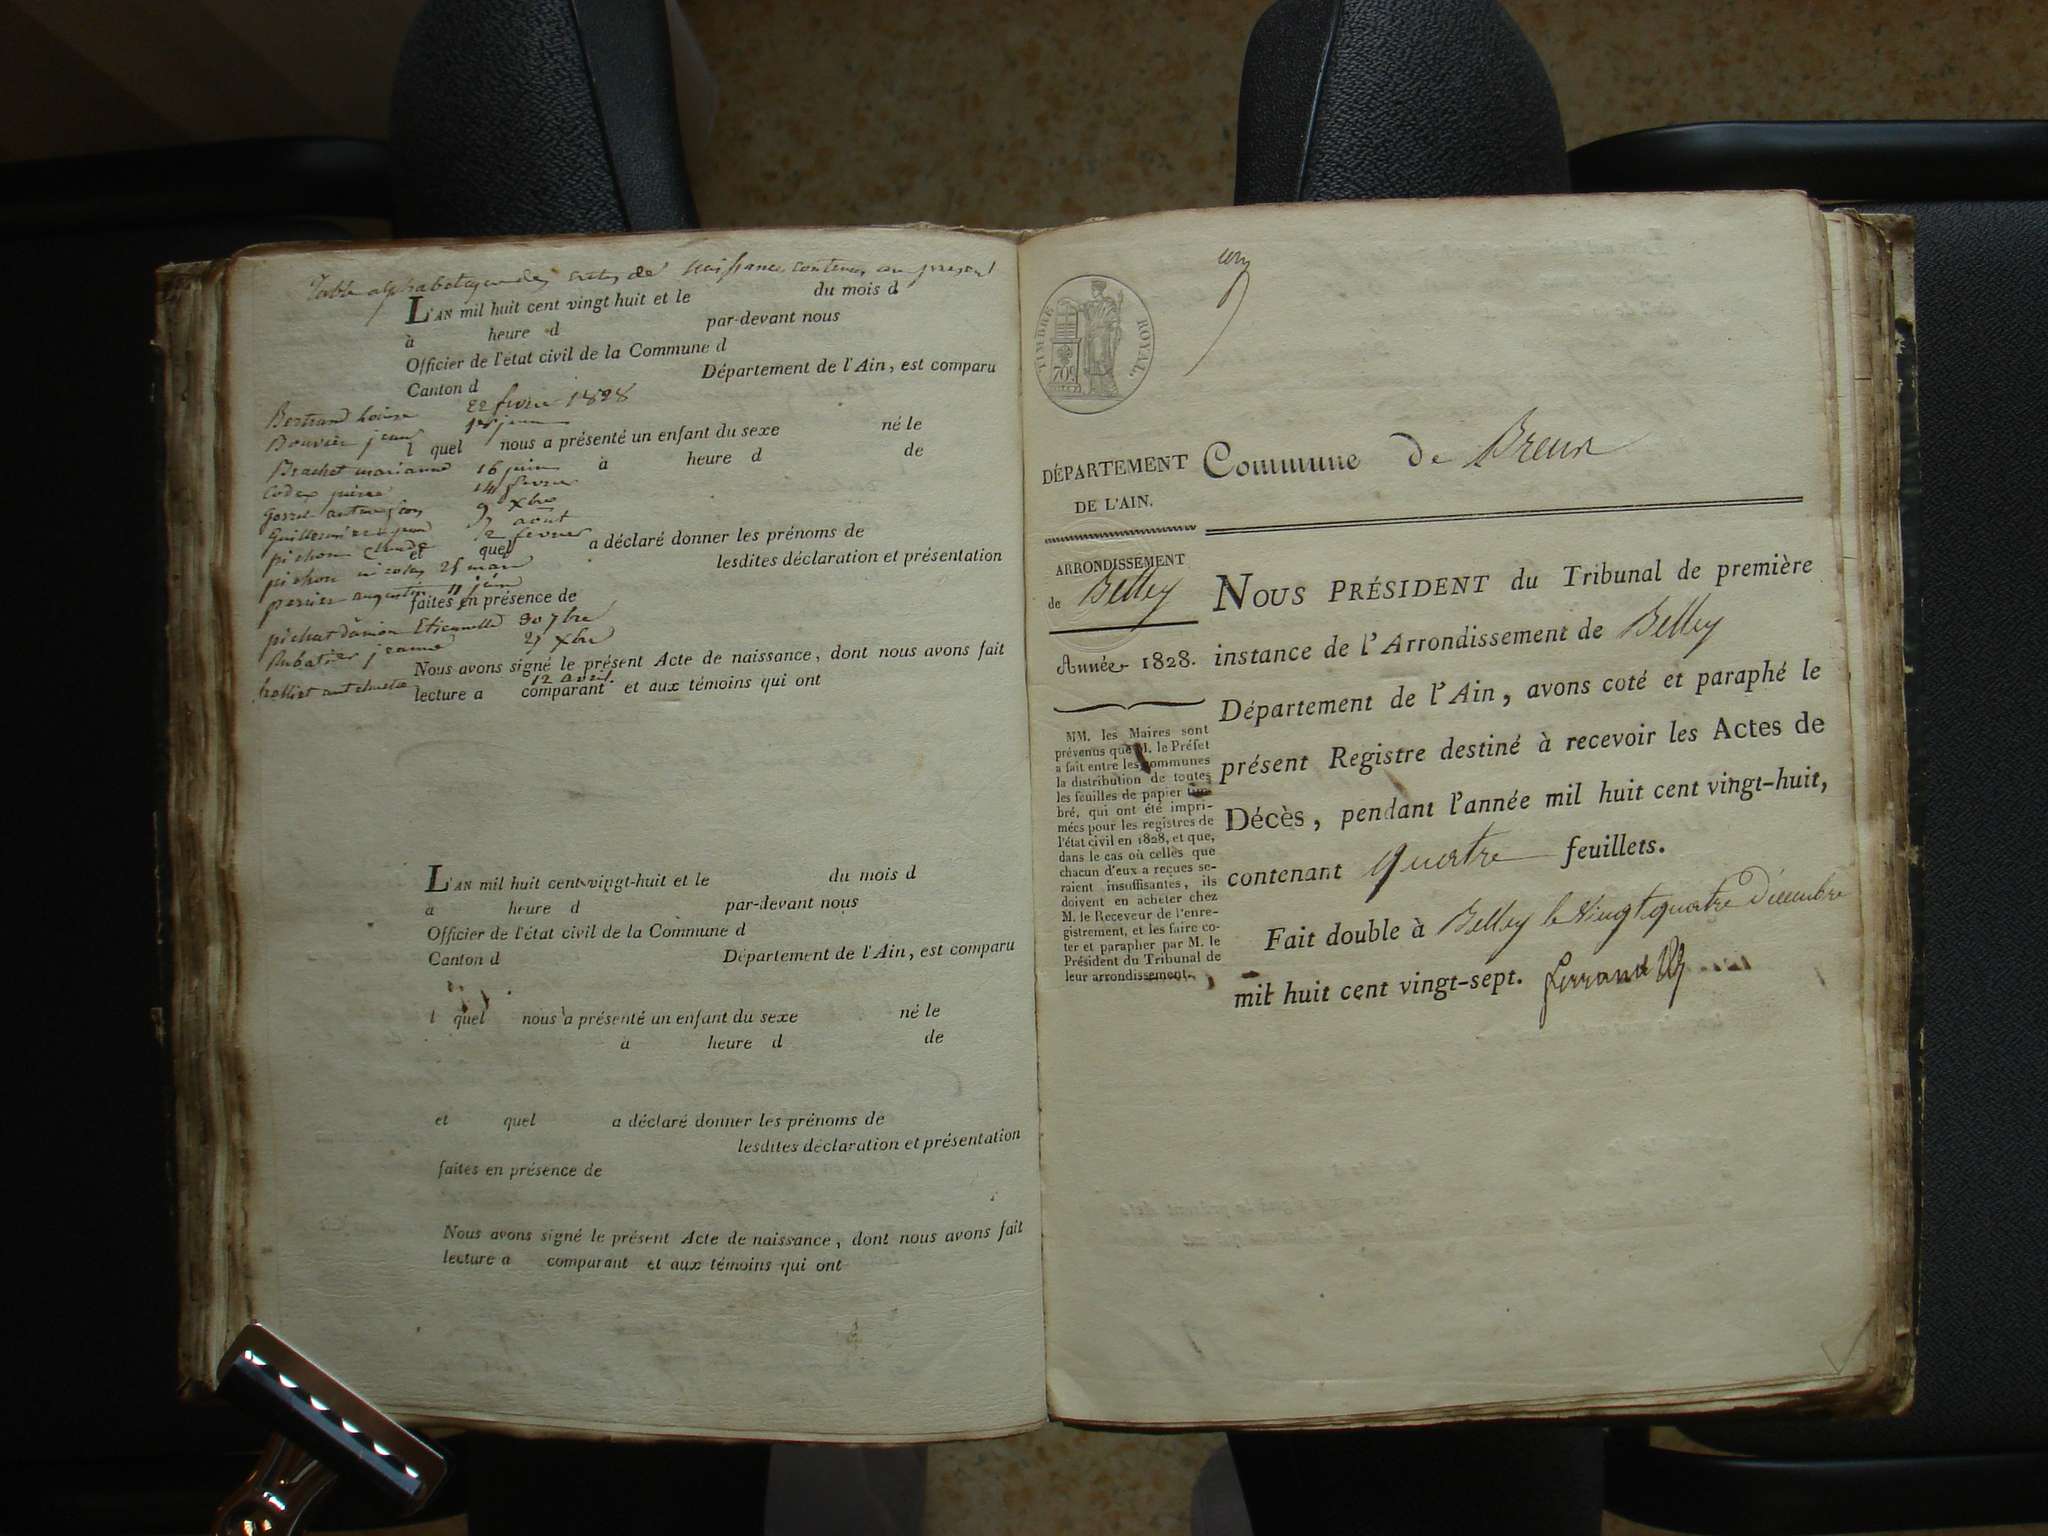 Table alphabetique des actes de naissance contenus au present
L'AN mil huit cent vingt huit et le du mois d
à heure d par-devant nous
Officier de l'état civil de la Commune d
Canton d Département de l'Ain, est comparu
Bertrand louise 22 fevrier 1828
Bouvier jean juin
l quel nous a présenté un enfant du sexe né le
Brachet marianne 16 juin à heure d de
pierre 14 fevrier
9 Xbre
aout
pichon claude 2 fevrier
et quel a déclaré donner les prénoms de
pichon nicolas 25 mars lesdites déclaration et présentation
perrier augustin 11 juin
faites en présence de
Etiennette 30 7bre
jeanne 27 Xbre
Nous avons signé le présent Acte de naissance, dont nous avons fait
12 avril
lecture a comparant et aux témoins qui ont
L'AN mil huit cent-vingt-huit et le du mois d
à heure d par-devant nous
Officier de l'état civil de la Commune d
Canton d Département de l'Ain, est comparu
l quel nous a présenté un enfant du sexe né le
à heure d de
et quel a déclaré donner les prénoms de
lesdites déclaration et présentation
faites en présence de
Nous avons signé le présent Acte de naissance, dont nous avons fait
lecture a comparant et aux témoins qui ont
TIMBRE ROYAL
70c
DÉPARTEMENT
DE L'AIN.
ARRONDISSEMENT
de Belley
Année 1828.
MM. les Maires sont
prévenus que M. le Préfet
a fait entre les communes
la distribution de toutes
les feuilles de papier tim-
bré, qui ont été impri-
mées pour les registres de
l'état civil en 1828, et que,
dans le cas où celles que
chacun d'eux a reçues se-
raient insuffisantes, ils
doivent en acheter chez
M. le Receveur de l'enre-
gistrement, et les faire co-
ter et parapher par M. le
Président du Tribunal de
leur arrondissement.
Commune de
NOUS PRÉSIDENT du Tribunal de première
instance de l'Arrondissement de Belley
Département de l'Ain, avons coté et paraphé le
présent Registre destiné à recevoir les Actes de
Décès, pendant l'année mil huit cent vingt-huit,
contenant quatre feuillets.
Fait double à Belley le vingt quatre Décembre
mil huit cent vingt-sept.